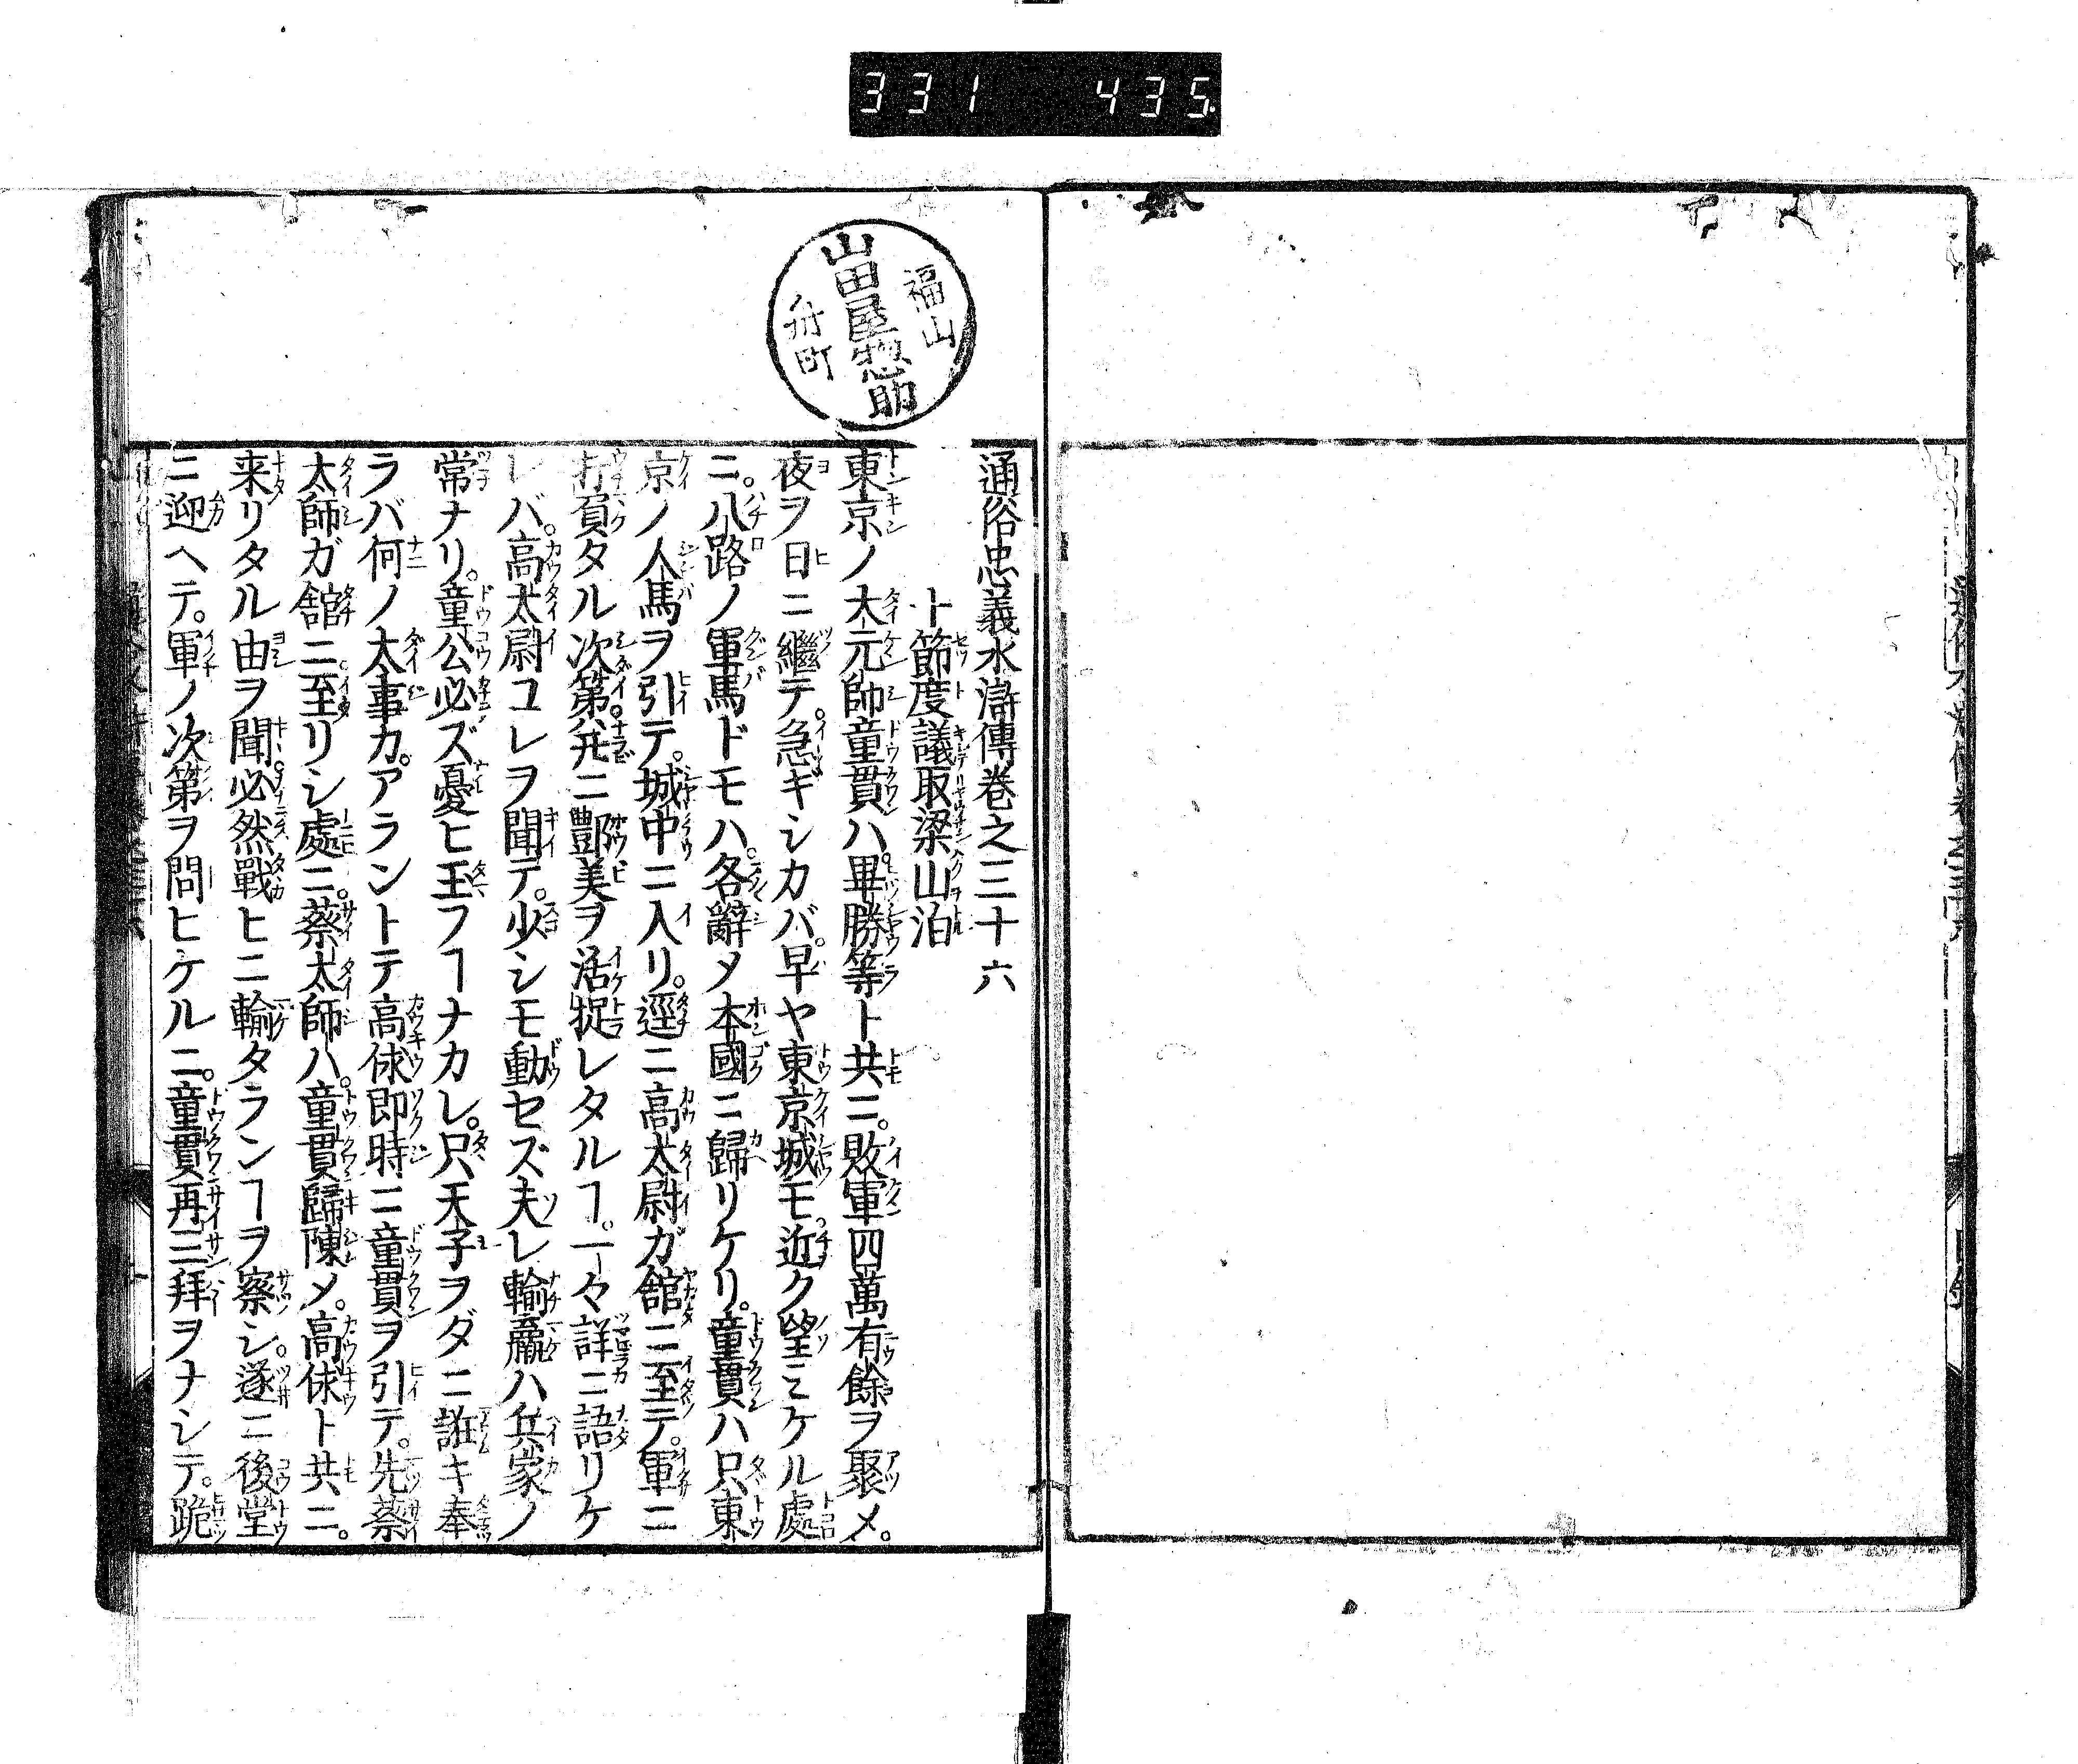 331 435
福山
山田屋惣助
舟町
通俗忠義水滸傳巻之三十六
十節度議取梁山泊
東京ノ大元帥童貫ハ。畢勝等ト共ニ。敗軍四萬有餘ヲ聚メ。
夜ヲ日ニ繼テ。急ギシカバ。早ヤ東京城モ。近ク望ミケル處
ニ。八路ノ軍馬ドモハ。各辭メ本國ニ歸リケリ。童貫ハ只東
京ノ人馬ヲ引テ。城中ニ入リ。逕ニ高太尉ガ舘ニ至テ。軍ニ
打負タル次第。并ニ酆美ヲ活捉レタルヿ。一々詳ニ語リケ
レバ。高太尉コレヲ聞テ。少シモ動セズ夫レ輸贏ハ兵家ノ
常ナリ。童公必ズ憂ヒ玉フヿナカレ。只天子ヲダニ誑キ奉
ラバ何ノ大事カ。アラントテ高俅即時ニ童貫ヲ引テ。先蔡
太師ガ舘ニ。至リシ處ニ。蔡太師ハ。童貫歸陳メ。高俅ト共ニ。
来リタル由ヲ聞。必然戰ヒニ輸タランヿヲ察シ。遂ニ後堂
ニ迎ヘテ。軍ノ次第ヲ問ヒケルニ。童貫再三拜ヲナシテ。跪